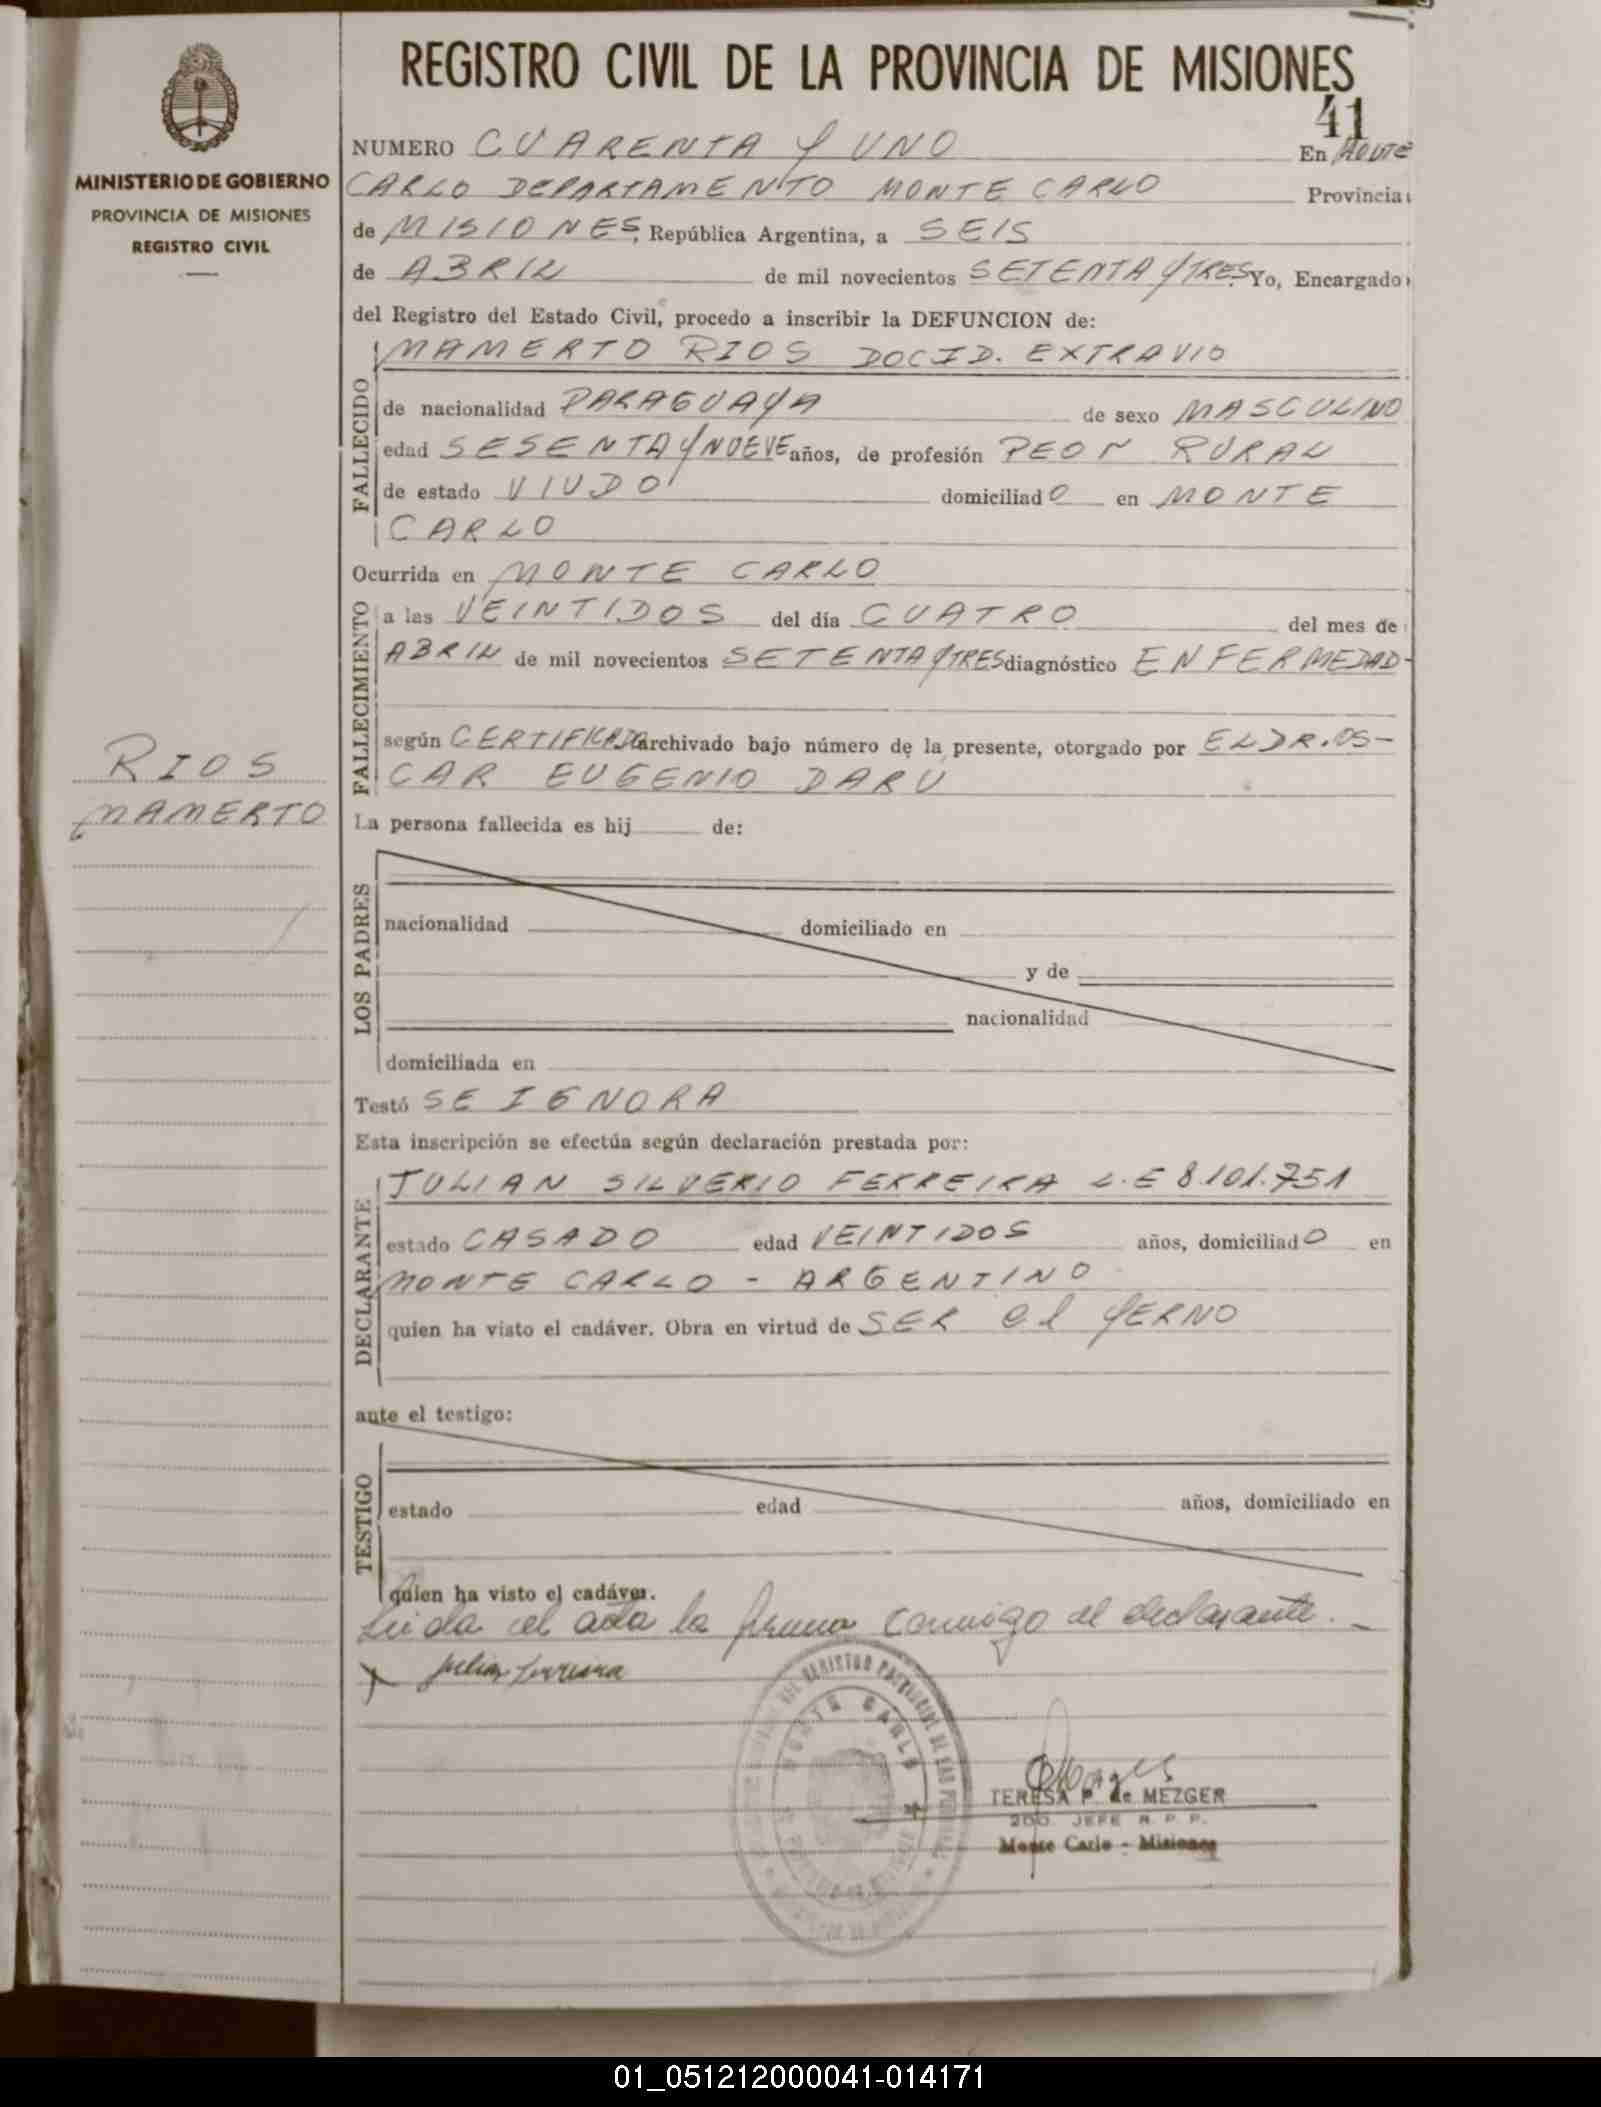 REGISTRO CIVIL DE LA PROVINCIA DE MISIONES
41
MINISTERIO DE GOBIERNO
PROVINCIA DE MISIONES
REGISTRO CIVIL
NUMERO CUARENTA Y UNO En MONTE
CARLO DEPARTAMENTO MONTE CARLO Provincia
de MISIONES, República Argentina, a SEIS
de ABRIL de mil novecientos SETENTA Y TRES. Yo, Encargado
del Registro del Estado Civil, procedo a inscribir la DEFUNCION de:
MAMERTO RIOS DOC ID. EXTRAVIO
FALLECIDO
de nacionalidad PARAGUAYA de sexo MASCULINO
edad SESENTA Y NUEVE años, de profesión PEON RURAL
de estado VIUDO domiciliado en MONTE
CARLO
Ocurrida en MONTE CARLO
FALLECIMIENTO
a las VEINTIDOS del día CUATRO del mes de
ABRIL de mil novecientos SETENTA Y TRES diagnóstico ENFERMEDAD-
según CERTIFICADO archivado bajo número de la presente, otorgado por EL DR. OS-
CAR EUGENIO DARU
RIOS
MAMERTO
La persona fallecida es hij de:
LOS PADRES
nacionalidad domiciliado en
y de
nacionalidad
domiciliada en
Testó SE IGNORA
Esta inscripción se efectúa según declaración prestada por:
JULIAN SILVERIO FERREIRA L.E 8.101.751
DECLARANTE
estado CASADO edad VEINTIDOS años, domiciliado en
MONTE CARLO - ARGENTINO
quien ha visto el cadáver. Obra en virtud de SER el YERNO
ante el testigo:
TESTIGO
estado edad años, domiciliado en
quien ha visto el cadáver.
Leida el acta la firma conmigo el declarante.-
Julian Ferreira
MONTE CARLO
TERESA P. de MEZGER
2DO. JEFE R. P. P.
Monte Carlo - Misiones
01_051212000041-014171